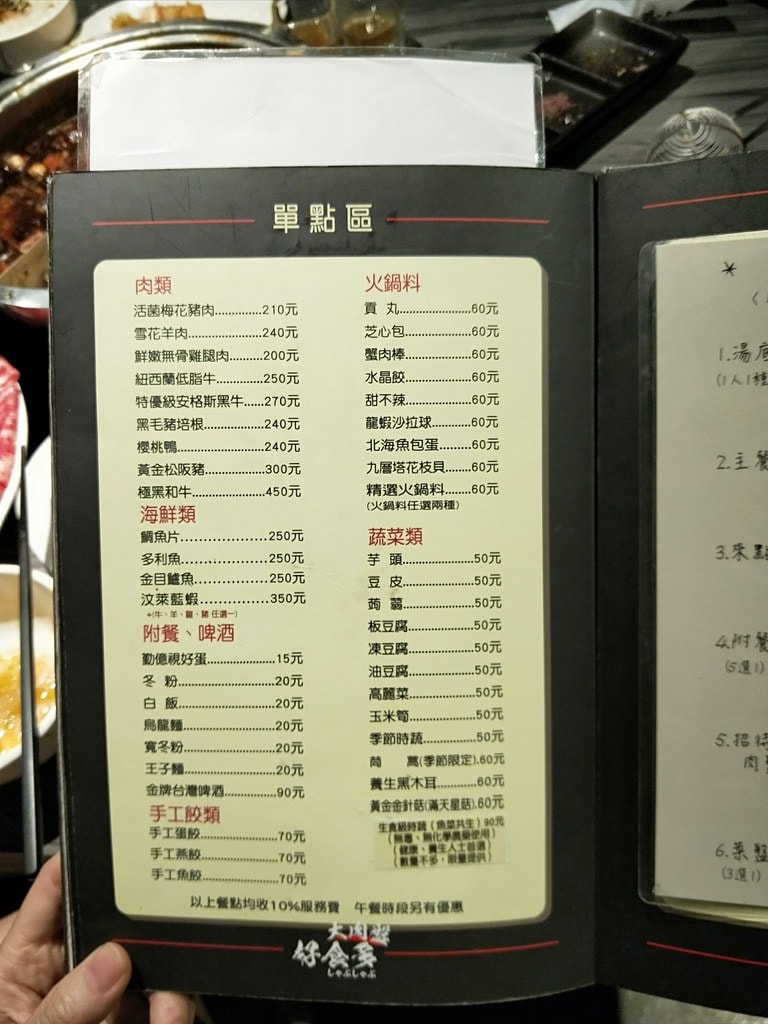 單點區
肉類
活菌梅花豬肉..............210元
雪花羊肉......................240元
鮮嫩無骨雞腿肉..........200元
紐西蘭低脂牛..............250元
特優級安格斯黑牛......270元
黑毛豬培根..................240元
櫻桃鴨..........................240元
黃金松阪豬..................300元
極黑和牛......................450元
海鮮類
鯛魚片......................250元
多利魚......................250元
金目鱸魚..................250元
汶萊藍蝦..................350元
+(牛、羊、雞、豬 任選一)
附餐、啤酒
勤億視好蛋......................15元
冬 粉..............................20元
白 飯..............................20元
烏龍麵............................20元
寬冬粉............................20元
王子麵............................20元
金牌台灣啤酒................90元
手工餃類
手工蛋餃........................70元
手工燕餃........................70元
手工魚餃........................70元
火鍋料
貢 丸......................60元
芝心包....................60元
蟹肉棒....................60元
水晶餃....................60元
甜不辣....................60元
龍蝦沙拉球............60元
北海魚包蛋............60元
九層塔花枝貝........60元
精選火鍋料........60元
(火鍋料任選兩種)
蔬菜類
芋 頭......................50元
豆 皮......................50元
蒟 蒻......................50元
板豆腐....................50元
凍豆腐....................50元
油豆腐....................50元
高麗菜....................50元
玉米筍....................50元
季節時蔬................50元
茼 蒿(季節限定).60元
養生黑木耳............60元
黃金金針菇(滿天星菇).60元
生食級時蔬(魚菜共生)90元
(無毒、無化學農藥使用)
(健康、養生人士首選)
(數量不多，限量提供)
以上餐點均收10%服務費 午餐時段另有優惠
大肉盤
好食多
しゃぶしゃぶ
*
1.湯底
(1人1種
2.主餐
3.來點
4.附餐
(5選1)
5.招待
肉
6.菜盤
(3選1)